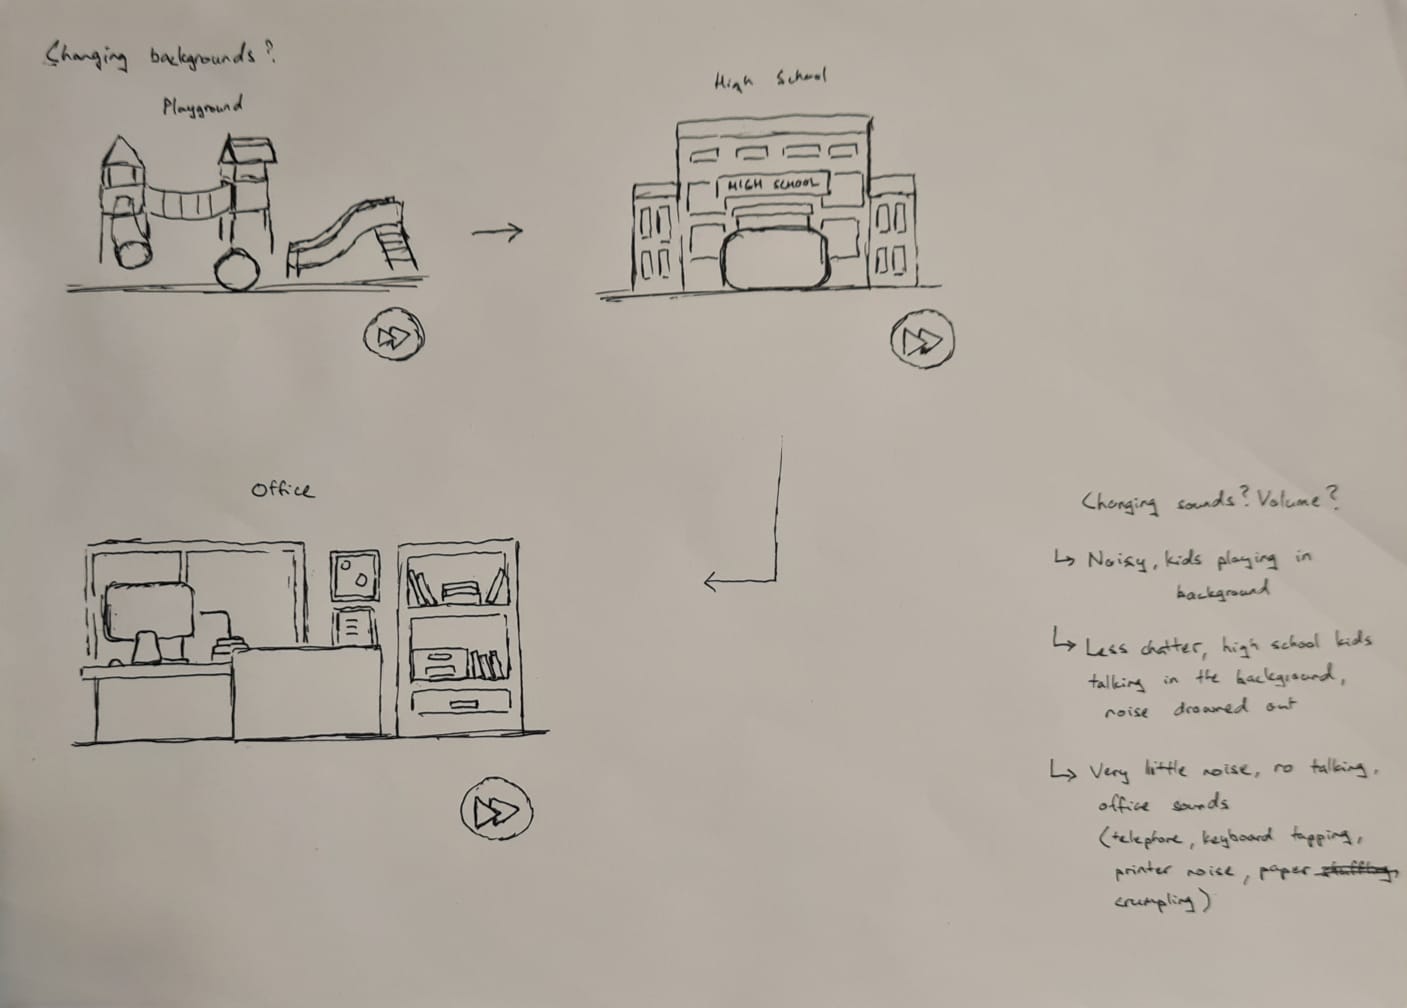 Changing backgrounds?
Playground
High School
HIGH SCHOOL
Office
Changing sounds? Volume?
↳ Noisy, kids playing in
background
↳ Less chatter, high school kids
talking in the background,
noise drowned out
↳ Very little noise, no talking,
office sounds
(telephone, keyboard tapping,
printer noise, paper shuffling,
crumpling)